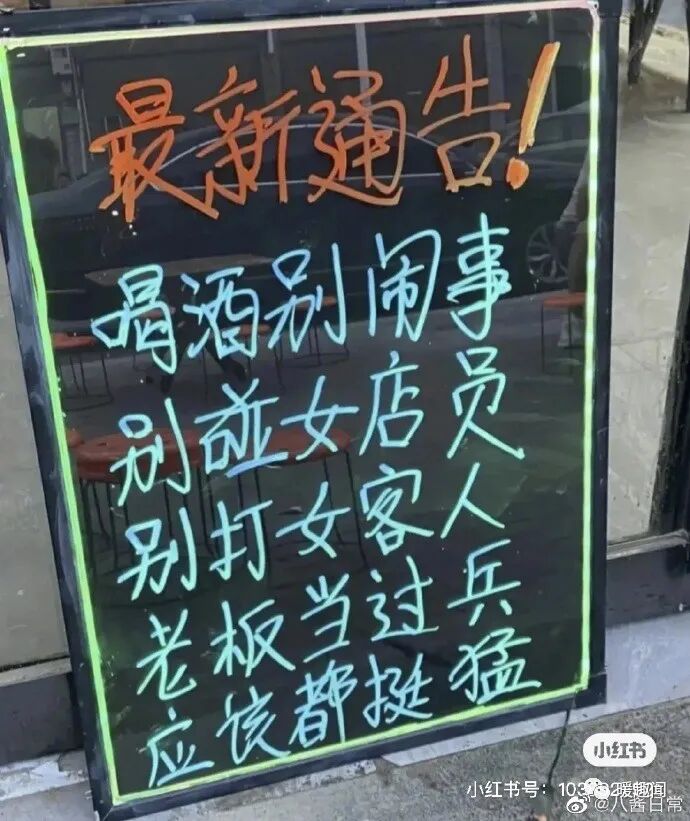 最新通告!
喝酒别闹事
别碰女店员
别打女客人
老板当过兵
应该都挺猛
小红书
小红书号:
暖趣闻
@八酱日常